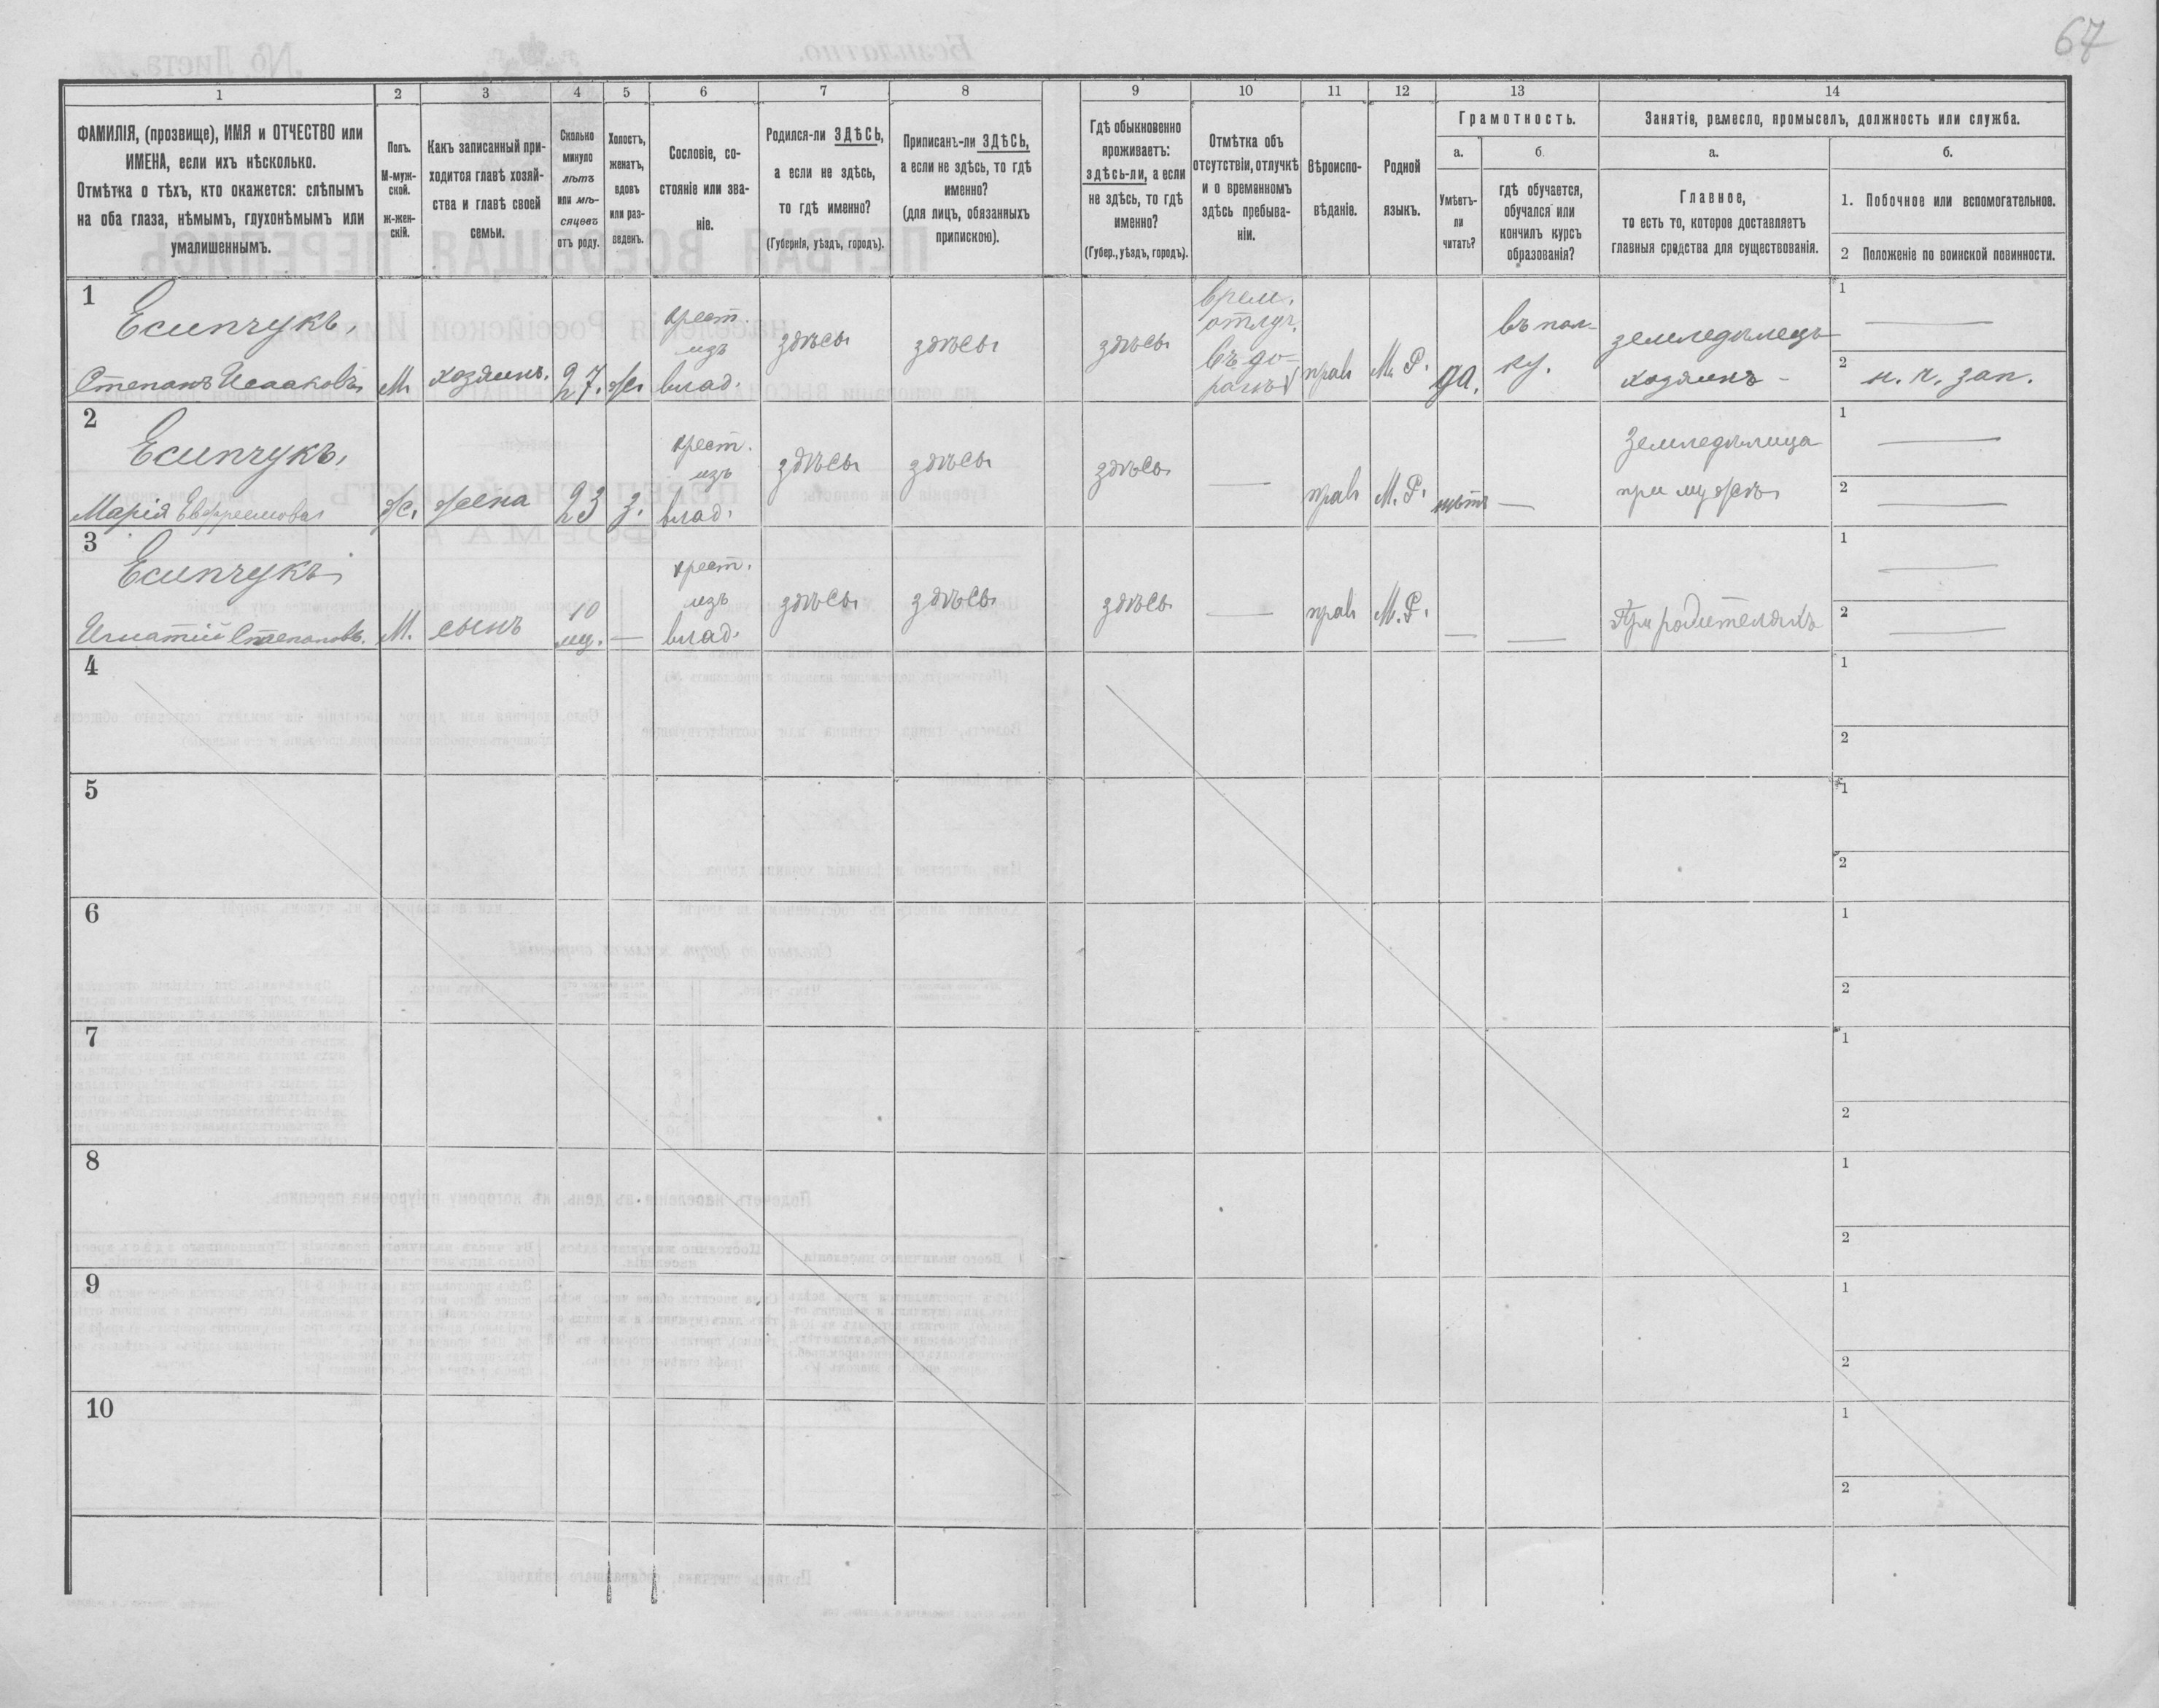 67
1
2
3
4
5
6
7
8
9
10
11
12
13
14
ФАМИЛІЯ, (прозвище), ИМЯ и ОТЧЕСТВО или
ИМЕНА, если ихъ нѣсколько.
Отмѣтка о тѣхъ, кто окажется: слѣпымъ
на оба глаза, нѣмымъ, глухонѣмымъ или
умалишеннымъ.
Полъ.
М-муж-
ской.
ж-жен-
скій.
Какъ записанный при-
ходится главѣ хозяй-
ства и главѣ своей
семьи.
Сколько
минуло
лѣтъ
или мѣ-
сяцевъ
отъ роду.
Холостъ,
женатъ,
вдовъ
или раз-
веденъ.
Сословіе, со-
стояніе или зва-
ніе.
Родился-ли ЗДѢСЬ,
а если не здѣсь,
то гдѣ именно?
(Губернія, уѣздъ, городъ).
Приписанъ-ли ЗДѢСЬ,
а если не здѣсь, то гдѣ
именно?
(для лицъ, обязанныхъ
припискою).
Гдѣ обыкновенно
проживаетъ:
здѣсь-ли, а если
не здѣсь, то гдѣ
именно?
(Губер., уѣздъ, городъ).
Отмѣтка объ
отсутствіи, отлучкѣ
и о временномъ
здѣсь пребыва-
ніи.
Вѣроиспо-
вѣданіе.
Родной
языкъ.
Грамотность.
а.
Умѣетъ-
ли
читать?
б.
гдѣ обучается,
обучался или
кончилъ курсъ
образованія?
Занятіе, ремесло, промыселъ, должность или служба.
а.
Главное,
то есть то, которое доставляетъ
главныя средства для существованія.
б.
1. Побочное или вспомогательное.
2 Положеніе по воинской повинности.
1
Есипчукъ,
Степанъ Исааковъ
М
хозяинъ.
27.
ж
крест.
изъ
влад.
здѣсь
здѣсь
здѣсь
врем.
отлуч.
въ до-
прав
М. Р.
да.
въ пол-
ку.
земледѣлецъ
хозяинъ -
1
2
н. ч. зап.
2
Есипчукъ,
Марія Ефремова
ж.
жена
23
з.
крест.
изъ
влад.
здѣсь
здѣсь
здѣсь
прав
М. Р.
нѣтъ
Земледѣлица
при мужѣ
1
2
3
Есипчукъ
Игнатій Степановъ.
М.
сынъ
10
мц.
крест.
изъ
влад.
здѣсь
здѣсь
здѣсь
прав
М. Р.
При родителяхъ
1
2
4
1
2
5
1
2
6
1
2
7
1
2
8
1
2
9
1
2
10
1
2